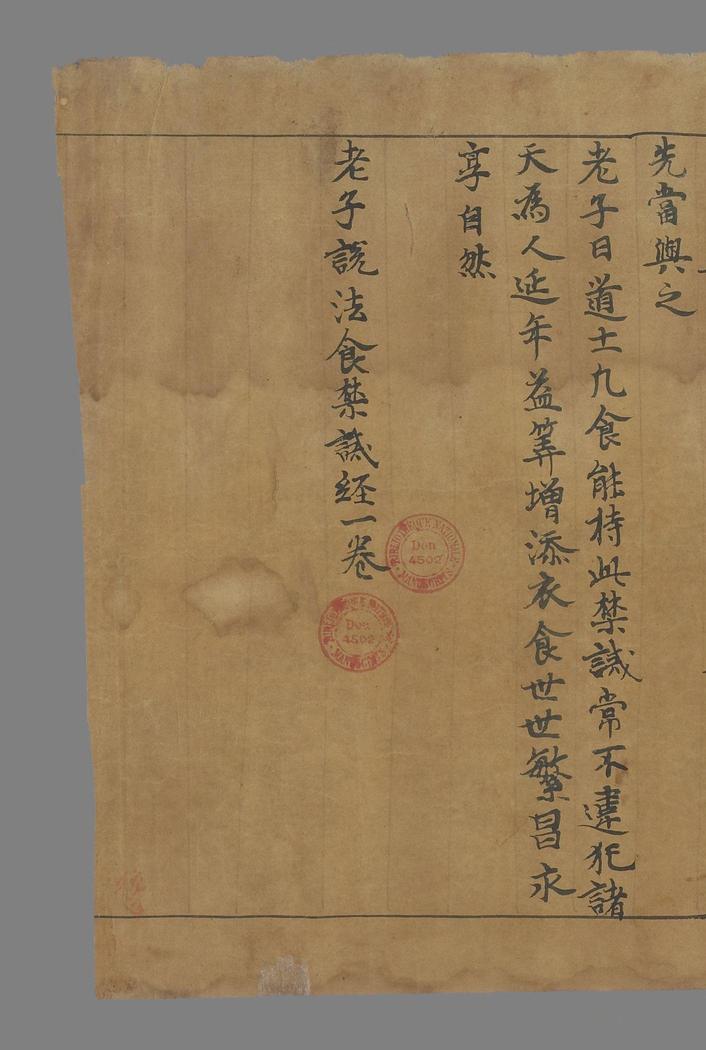 先當與之
老子曰道士凡食能持此禁誡常不違犯諸
天為人延年益筭增添衣食世世繁昌永
享自然
老子說法食禁誡經一卷
BIBLIOTHÈQUE NATIONALE Don 4502 MANUSCRITS
BIBLIOTHÈQUE NATIONALE Don 4502 MANUSCRITS